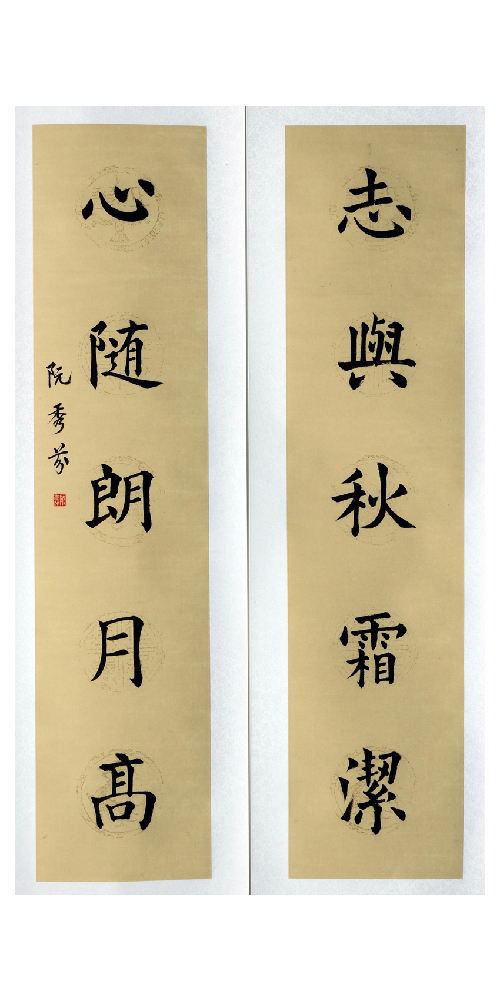 志與秋霜潔
心随朗月高
阮秀芬